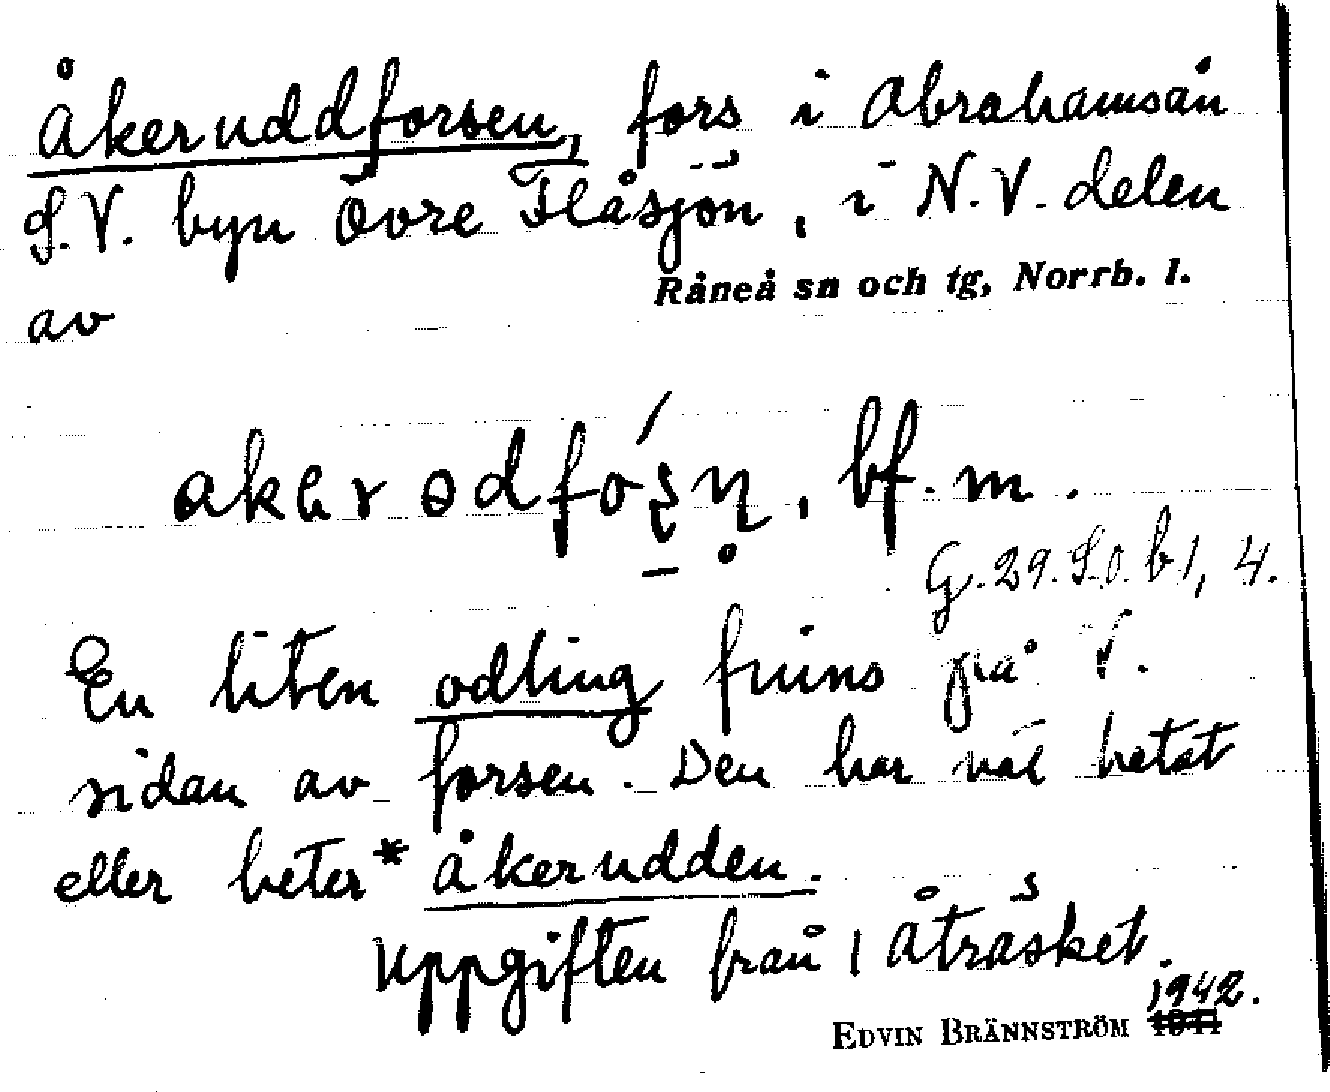 Åkeruddforsen, fors i Abrahamsån
S.V. byn Övre Flåsjön, i N.V. delen
av Råneå sn och tg, Norrb. l.
bf. m.
G. 29. S.O. b 1, 4.
En liten odling finns på V.
sidan av forsen. Den har väl hetat
eller heter * Åkerudden.
Uppgiften från 1 Åträsket.
1942.
EDVIN BRÄNNSTRÖM 1941